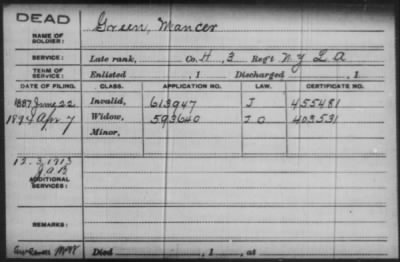 DEAD
NAME OF SOLDIER: Green, Mancer
SERVICE: Late rank, Co. H, 3 Reg't N Y L A
TERM OF SERVICE: Enlisted , 1 Discharged , 1
DATE OF FILING. CLASS. APPLICATION NO. LAW. CERTIFICATE NO.
1887 June 22 Invalid, 613947 J 455481
1894 Apr 7 Widow, 593640 403531
Minor,
12.3.1913
ADDITIONAL SERVICES:
REMARKS:
Died , 1 , at